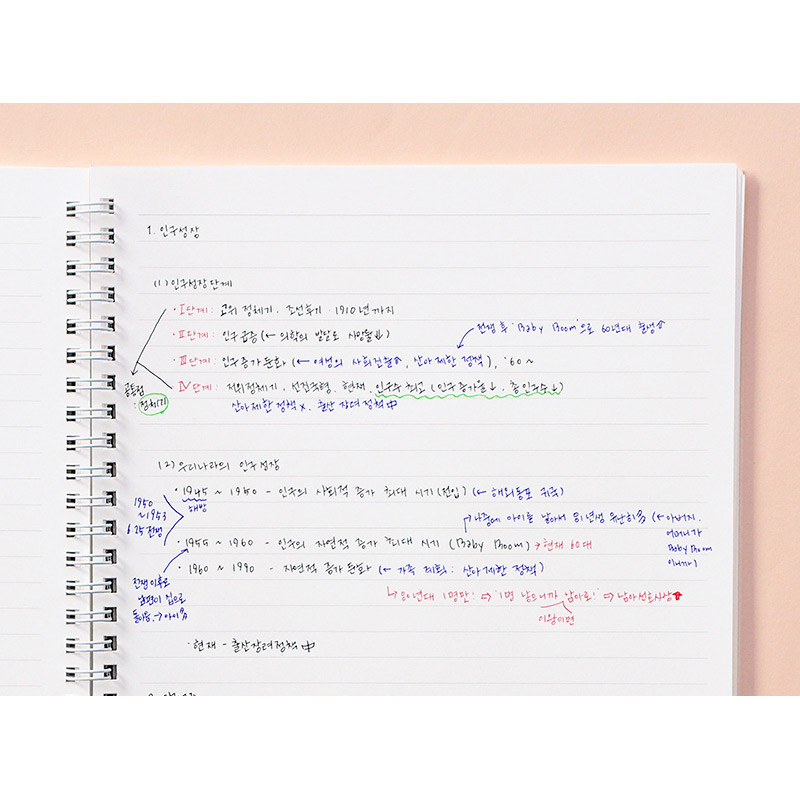 1. 인구성장
(1) 인구성장단계
· Ⅰ단계 : 고위 정체기. 조선후기. 1910년까지
전쟁 후 'Baby Boom'으로 60년대 출생↑
· Ⅱ단계 : 인구급증 (← 의학의 발달로 사망률↓)
· Ⅲ단계 : 인구증가 둔화 (← 여성의 사회진출↑, 산아제한 정책), '60 ~
· Ⅳ단계 : 저위정체기. 선진국형. 현재. 인구수 최고 (인구증가율↓. 총인구수↓)
공통점
: 정체기
산아제한 정책 x. 출산 장려 정책 中
(2) 우리나라의 인구성장
· 1945 ~ 1950 - 인구의 사회적 증가 최대 시기 (전입) (← 해외동포 귀국)
해방
1950
~1953
6.25 전쟁
나중에 아이를 낳아서 81년생 유난히多 (← 아버지.
어머니가
Baby Boom
이니까)
· 1955 ~ 1960 - 인구의 자연적 증가 최대 시기 (Baby Boom) → 현재 60대
· 1960 ~ 1990 - 자연적 증가 둔화 (← 가족 계획 : 산아제한 정책)
전쟁 이후로
남편이 집으로
돌아옴. → 아이多
↳ 80년대 1명만! ⇨ '1명 낳으니까 남아로!' ⇨ 남아선호사상↑
이왕이면
· 현재 - 출산장려정책 中